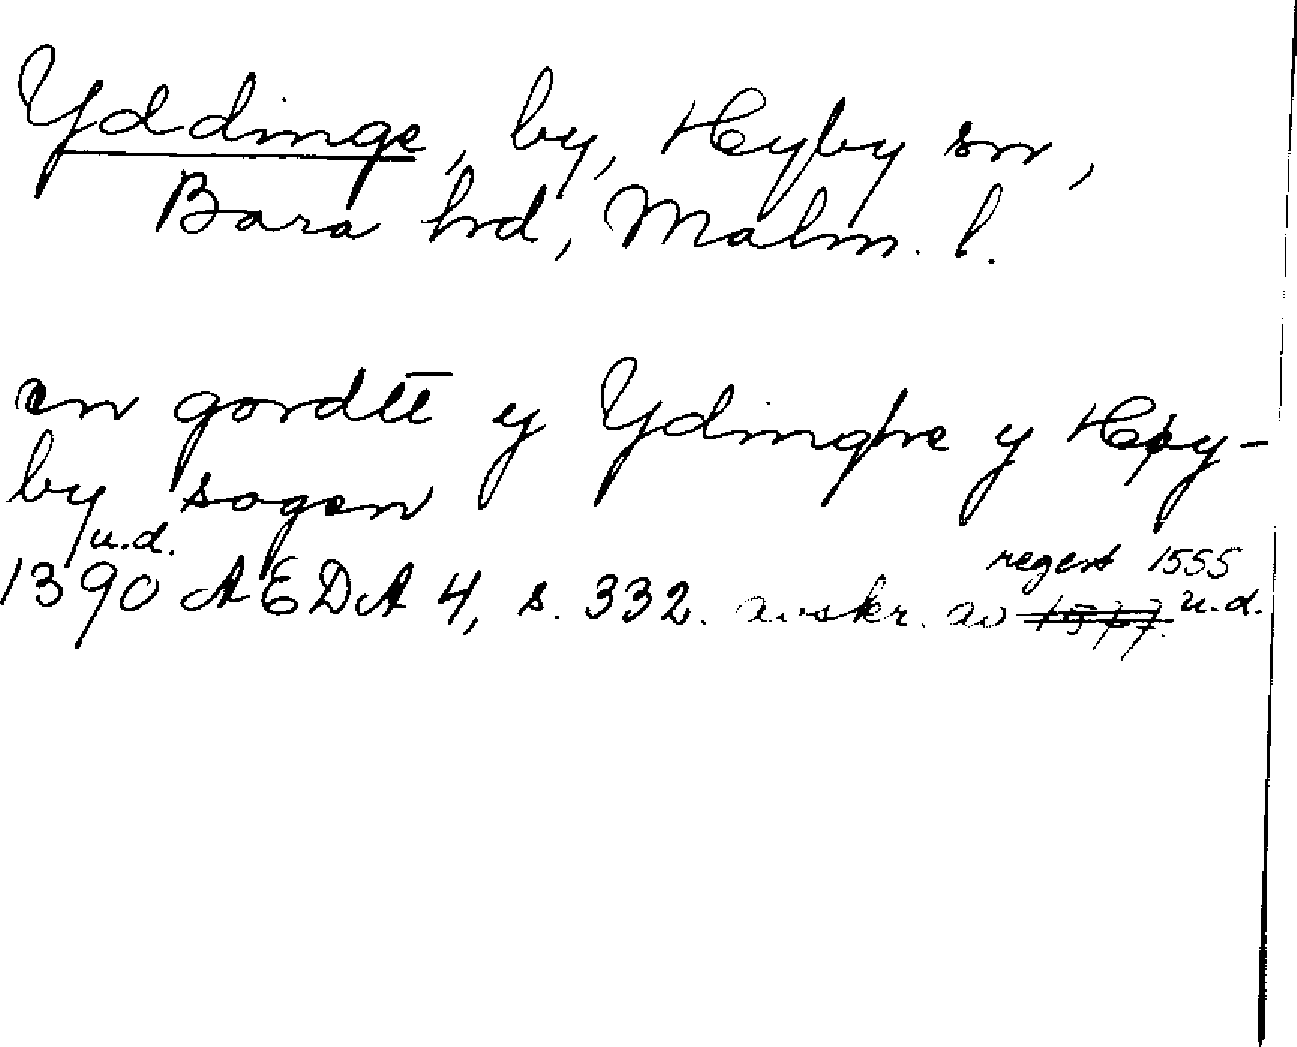 Yddinge, by, Hyby sn,
Bara hrd, Malm. l.
en gordtt y Ydinghe y Høy-
by sogen
u.d.
1390 AEDA 4, s. 332. avskr. av regest 1555 u.d.